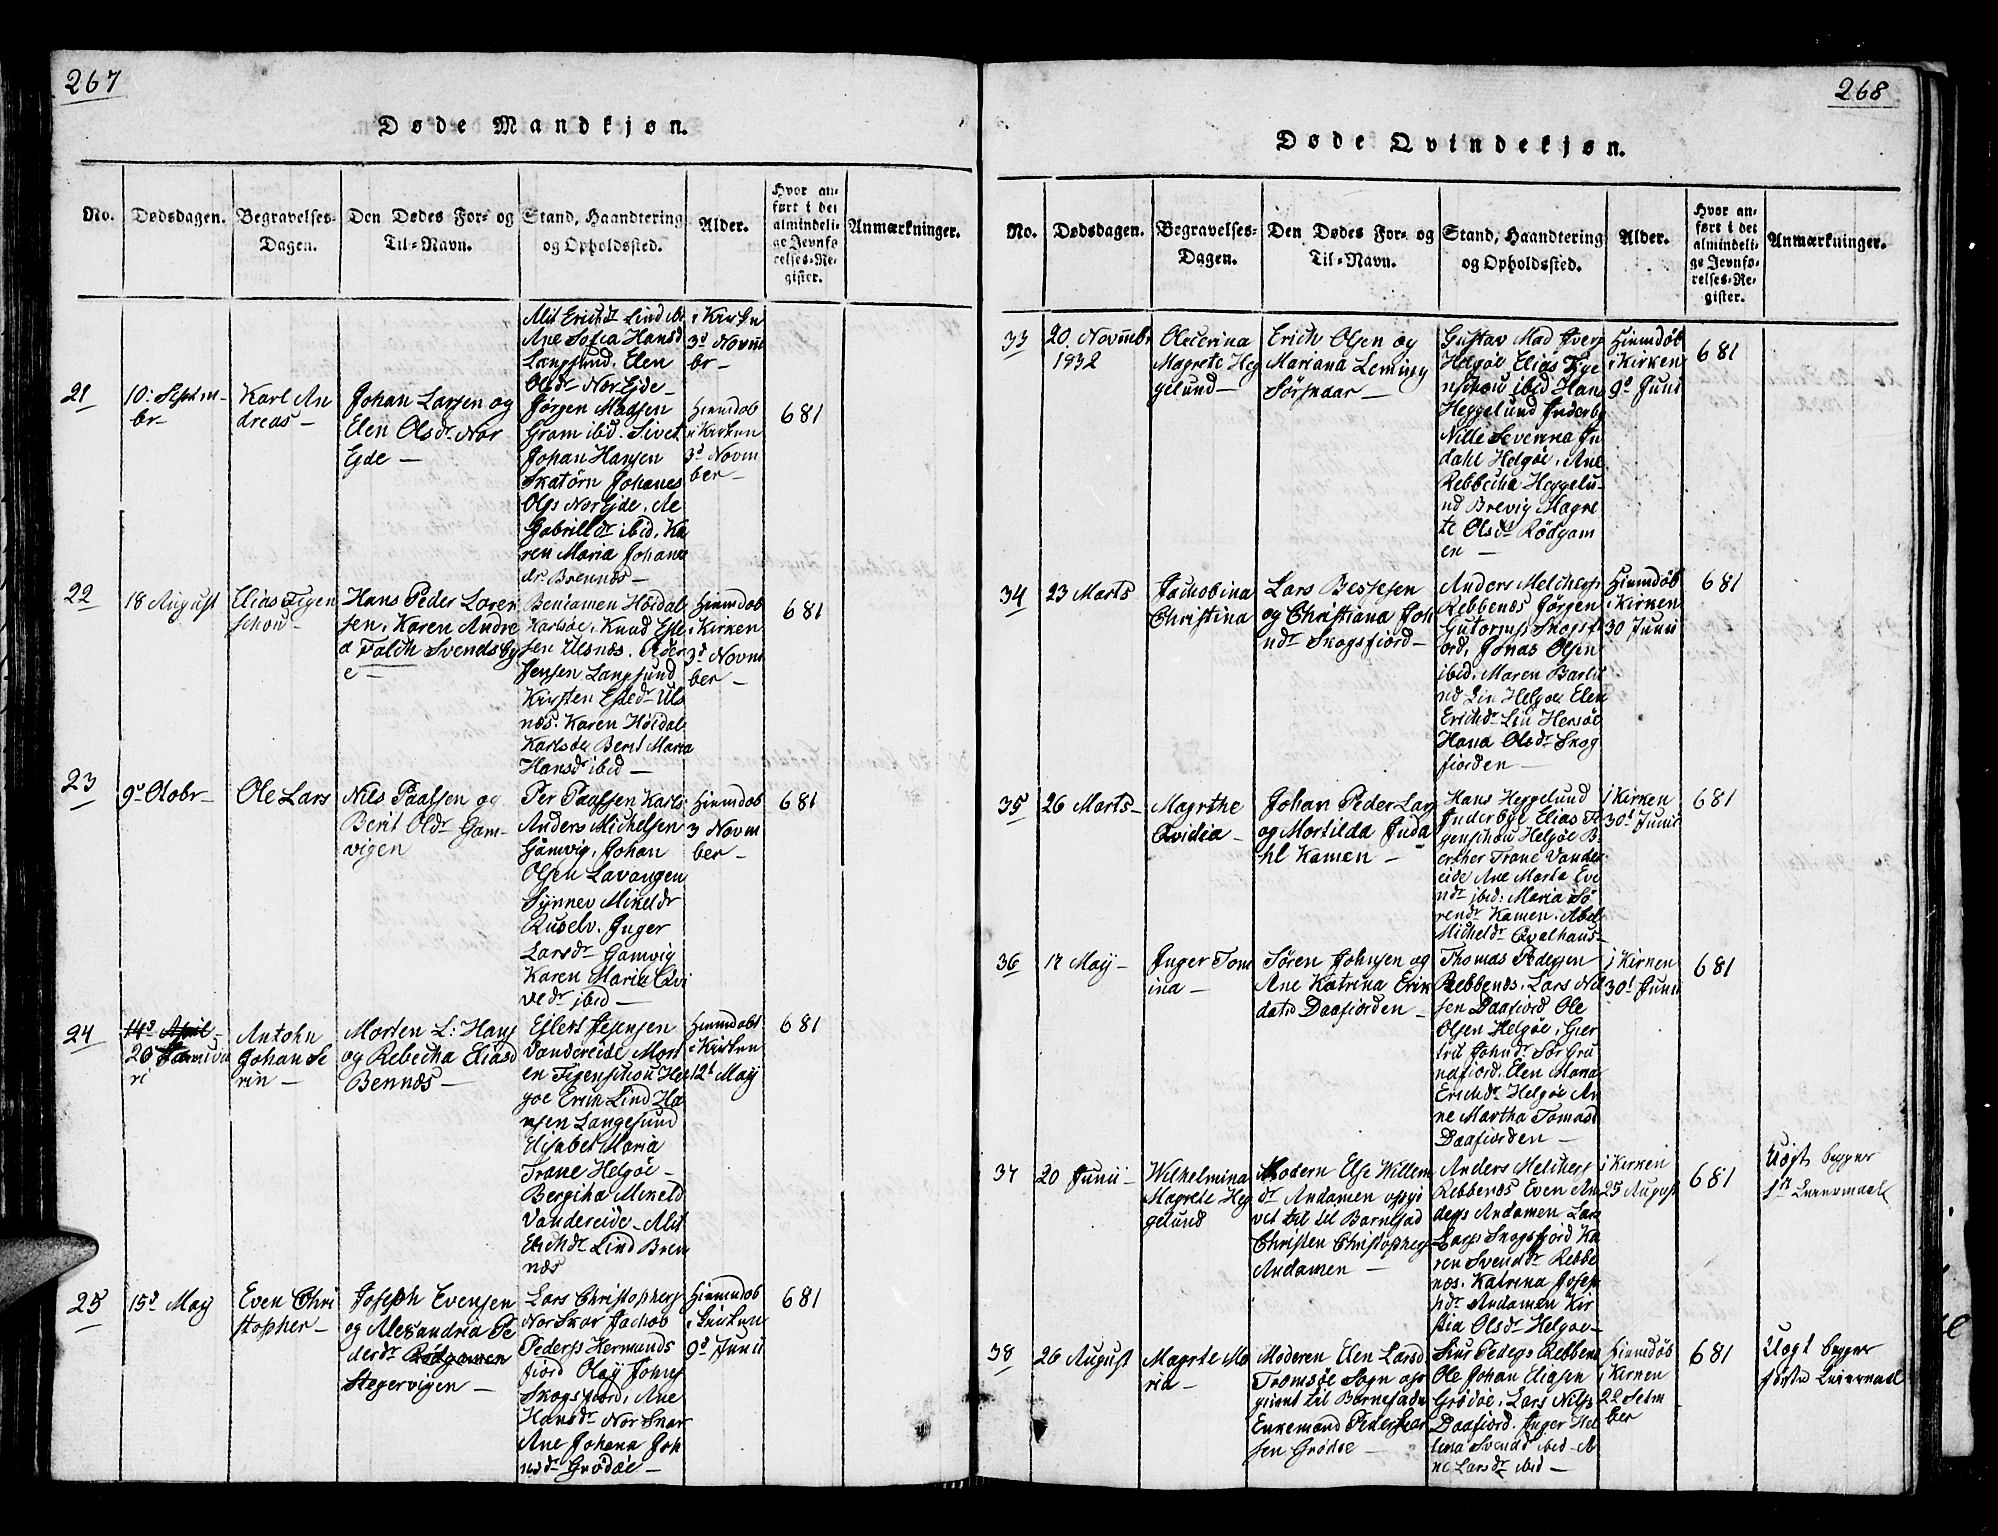 267
Døde Mandkjøn.
No.
Dødsdagen.
Begravelses-
Dagen.
Den Dødes For- og
Til-Navn.
Stand, Haandtering
og Opholdssted.
Alder.
Hvor an-
ført i det
almindeli-
ge Jevnfø-
relses-Re-
gister.
Anmærkninger.
Alit Erichdr Lind ibd
Ane Sofia Hansd
Langsund. Elen
Olsdr Nor Ejde
i Kirken
3d Novm
br-
21
10: Septm-
br-
Karl An
dreas-
Johan Larsen og
Elen Olsdr Nor
Ejde-
Jørgen Madsen
Gram ibid. Sivet
Johan Hansen
Skatörn Johanes
Ols Nor Ejde, Ae
Gabrilldr ibid. Ka
ren Maria Johans
dr. Brennæs-
Hiemdøb
i Kirken
3d Novm
ber-
681
22
18 August
Elias Figen
schou-
Hans Peder Loren
sen, Karen Andre
a Falch Svendsby
e-
Beniamen Höidal
Karlsöe, Knud Ese
sen Ulsnæs. Peder
Jensen Langsund
Kirsten Esedr Uls
næs. Karen Höidal
Karlsöe Berit Maria
Hansdr ibid-
Hiemdøb
i Kirken
3d Novm
ber-
681
23
9d Otobr-
Ole Lars
Nils Paalsen og
Berit Oldr Gam-
vigen
Per Paalsen Karls
Anders Michelsen
Gamvig, Johan
Olsen Lavangen
Synnev Mikeldr
Ruselv. Inger
Larsdr Gamvig
Karen Maria Qvi
vedr ibid-
Hiemdøb
3 Novm
ber-
681
24
14d April-
20 Januva
ri
Antohn
Johan Se
rin-
Morten L: Hans
og Rebecha Eliasd
Bennæs-
Ejlert Jesensen
Vandereide Mort
en Figenschou Hel
göe Erich Lind Ha
nsen Langesund
Elisabet Maria
Trane Helgöe-
Bergitha Mikeld
Vandereide- Alit
Erichdr Lind Bren
næs
Hiemdøbt
i Kirken
12t Maÿ
681
25
15d Maÿ
Even Chri
stopher-
Joseph Evensen
og Alexandria Pe
dersdr Rödgamen
Stegervigen-
Lars Christophers
Nor Skar Jachob
Peders Hermands
fiord Olaÿ Johns
Skogsfiord, Ane
Hansdr Nor Skar
Ane Johana Joh
nsdr Grödöe-
Hiemdøb
i Kirken
9d Junii
681
268
Døde Qvindekjøn.
No.
Dødsdagen.
Begravelses-
Dagen.
Den Dødes For- og
Til-Navn.
Stand, Haandtering
og Opholdssted.
Alder.
Hvor an-
ført i det
almindeli-
ge Jevnfø-
relses-Re-
gister.
Anmærkninger.
33
20 Novmbr
1832
Olverina
Magrete Heg
gelund-
Erich Olsen og
Mariana Leming
Sörsnaar-
Gustav Mad Ivers
Helgöe Elias Fige
nschou ibid Han
Heggelund Inderby
Nille Severina In
dahl Helgöe, Ane
Rebbecha Heggelu-
nd Brevig Magre
te Olsdr Rödgam
en-
Hiemdøb
i Kirken
9d Juni
681
34
23 Marts
Jachobina
Christina
Lars Bessesen
og Christiana Joh
ndr Skogsfiord-
Anders Melchers
Rebbenæs Jörgen
Gutorms Skogsfi
ord, Jonas Olsen
ibid, Maren Barlu
nd Lin Helgöe Elen
Erichdr Lin Hersöe
Hana Olsdr Skog
fiorden-
Hiemdøb
i Kirken
30 Junii
681
35
26 Marts-
Magrthe
Qvidia-
Johan Peder Lars
og Mortilda Inda
hl Kamen-
Hans Heggelund
Inderbye Elias Fi
genschou Helgöe B
erther Trane Vander
eide Ane Marta Eve
ndr ibid. Maria Sö
rendr Kamen. Abel
Micheldr Qvalhaus-
i Kirken
30t Junii
681
36
17 Maÿ-
Inger Tom
ina-
Sören Johnsen og
Ane Katrina Erik
datr Daafjorden-
Thomas Pedersen
Rebbenæs. Lars Nil
sen Daafiord Ole
Olsen Helgöe, Gier
trü Johndr Sör Gru
ndfiord. Elen Maria
Erichdr Helgöe An
ne Martha Tomasd
Daafiorden-
i Kirken
30t Junii
681
37
20 Junii-
Wilhelmina
Magrete Heg
gelund
Modern Else Willem
dr Andamen opgi
vet til til Barnefad
Christen Christophers
Andamen-
Anders Melchers
Rebbenæs Even An
ders Andamen Lars
Lars Skogsfjord Ka
ren Svendr Rebbe
næs. Katrina Joseph
hdr Andamen Kir
stia Olsdr Helgöe-
i Kirken
25 August
681
Uægt begges
1te Leiermaal
38
26 August
Magrete Ma
ria-
Moderen Elen Larsd
Tromsöe Sogn opr
givent til Barnefader
Enkemand Peder Lar
sen Grödöe-
Siur Peders Rebbenæ
Ole Johan Eliasen
Grödöe, Lars Nils
Daafjord. Inger Hel
lena Svendr ibid- A
ne Larsdr ibid-
Hiemdøb
i Kirken
22 Septm
ber
681
Uægt begges
første Leiermaal